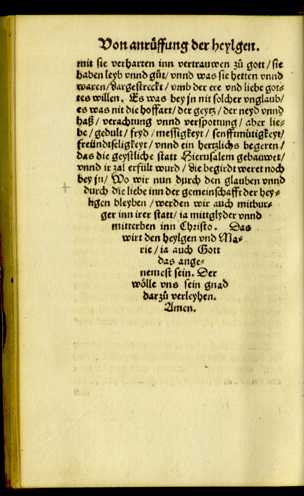 Von anrüffung der heylgen.
mit sie verharten inn vertrauwen zů gott / sie
haben leyb vnnd gůt / vnnd was sie hetten vnnd
waren / dargestreckt / vmb der ere vnd liebe got-
tes willen. Es was bey jn nit solcher vnglaub /
es was nit die hoffart / der geytz / der neyd vnnd
haß / verachtung vnnd verspottung / aber lie-
be / gedult / fryd / messigkeyt / senfftmütigkeyt /
freündtseligkeyt / vnnd ein hertzlichs begeren /
das die geystliche statt Hierusalem gebauwet /
vnnd ir zal erfült wurd / die begirdt weret noch
bey jn / Wo wir nun durch den glauben vnnd
durch die liebe inn der gemeinschafft der hey-
ligen bleyben / werden wir auch mitbur-
ger inn irer statt / ia mittglyder vnnd
mitterben inn Christo. Das
wirt den heylgen vnd Ma-
rie / ia auch Gott
das ange-
nemest sein. Der
wölle vns sein gnad
darzů verleyhen.
Amen.